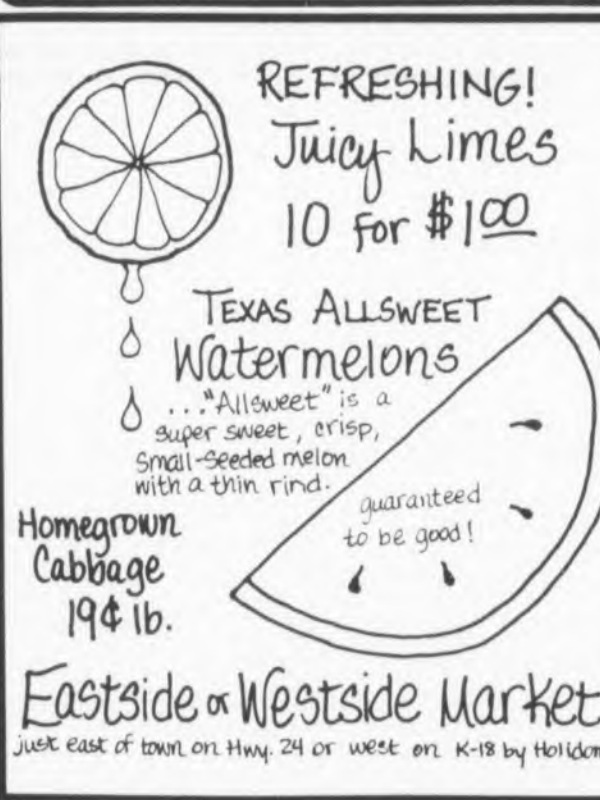 REFRESHING!
Juicy Limes
10 for $1.00
TEXAS ALLSWEET
Watermelons
..."Allsweet" is a
super sweet, crisp,
small-seeded melon
with a thin rind.
guaranteed
to be good!
Homegrown
Cabbage
19¢ lb.
Eastside or Westside Market
just east of town on Hwy. 24 or west on K-18 by